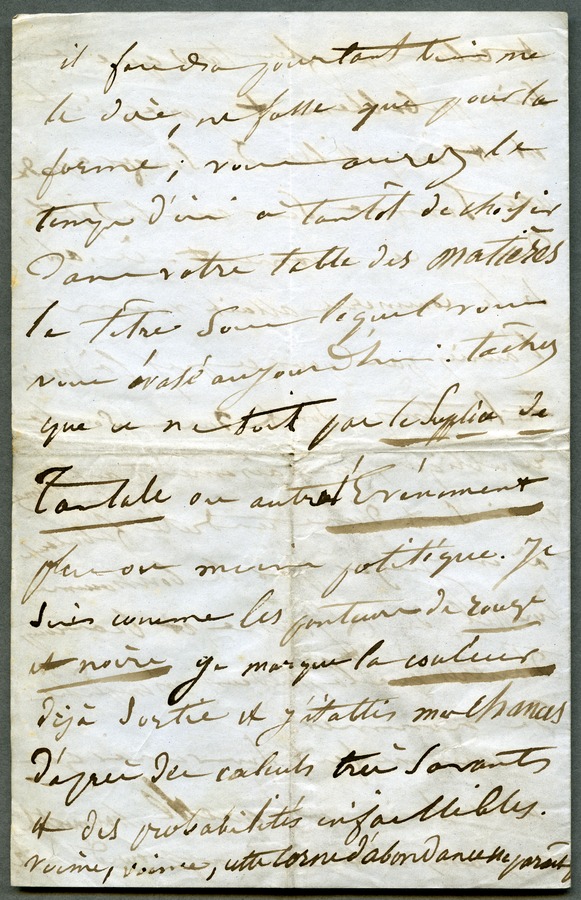 il faudra pourtant bien me
le dire, ne fasse que pour la
forme; vous aurez le
temps d'ici a tantôt de choisir
dans votre table des matières
le titre sous lequel vous
vous aujourd'hui. tâchez
que ce ne soit pas le Suplice de
Tantale ou autre Evénement
plus ou moins politique. Je
suis comme les ponteurs de rouge
et noire je marque la couleur
déjà sortie et j'établis mes chances
d'après des calculs très savants
et des probabilités infaillibles.
voime, voime, cette corne d'abondance me parait